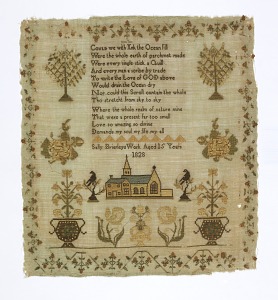 Could we with Ink the Ocean fill
Were the whole earth of parchment made
Were every single stick a Quill
And every man a scribe by trade
To write the Love of GOD above
Would drain the Ocean dry
Nor could this Scroll contain the whole
Tho stretch from sky to sky
Where the whole realm of nature mine
That were a present far too small
Love so amazing so divine
Demands my soul my life my all
Sally Work Aged 15 Years
1828